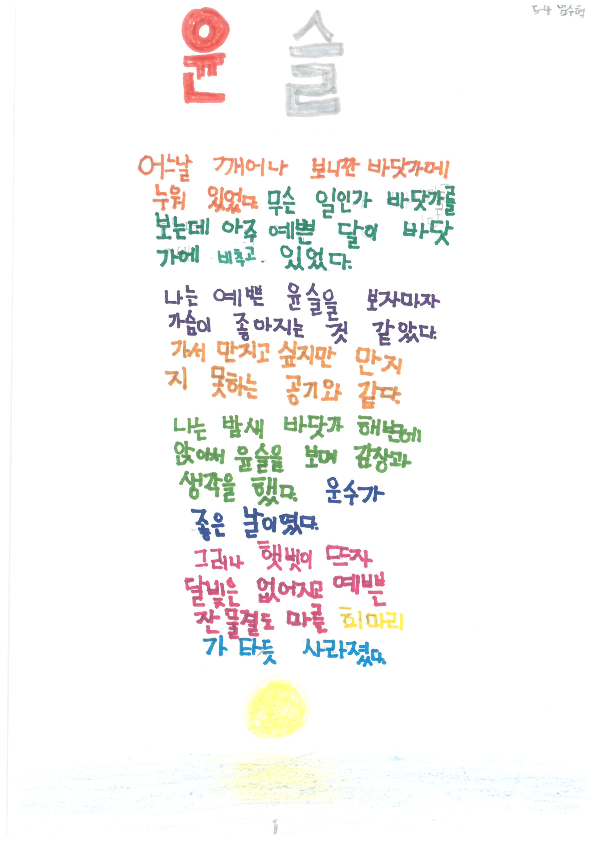 5-4 남수혁
윤슬
어느날 깨어나 보니깐 바닷가에
누워 있었다. 무슨 일인가 바닷가를
보는데 아주 예쁜 달이 바닷
가에 비추고 있었다.
나는 예쁜 윤슬을 보자마자
가슴이 좋아지는 것 같았다.
가서 만지고 싶지만 만지
지 못하는 공기와 같다.
나는 밤새 바닷가 해변에
앉아서 윤슬을 보며 감장과
생각을 했다. 운수가
좋은 날이였다.
그러나 햇빛이 뜨자
달빛은 없어지고 예쁜
잔물결도 마를 희마리
가 타듯 사라졌다.